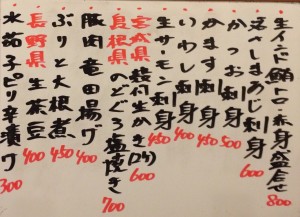 生インド鮪トロ・赤身盛合せ 800
活〆しまあじ刺身 600
かつお刺身 500
かます刺身 450
いわし刺身 400
生サーモン刺身 450
宮城県殻付生かき(2ケ) 600
島根県のどぐろ塩焼き 700
豚肉竜田揚げ 400
ぶりと大根煮 450
長野県生茶豆 400
水茄子ピリ辛漬け 300